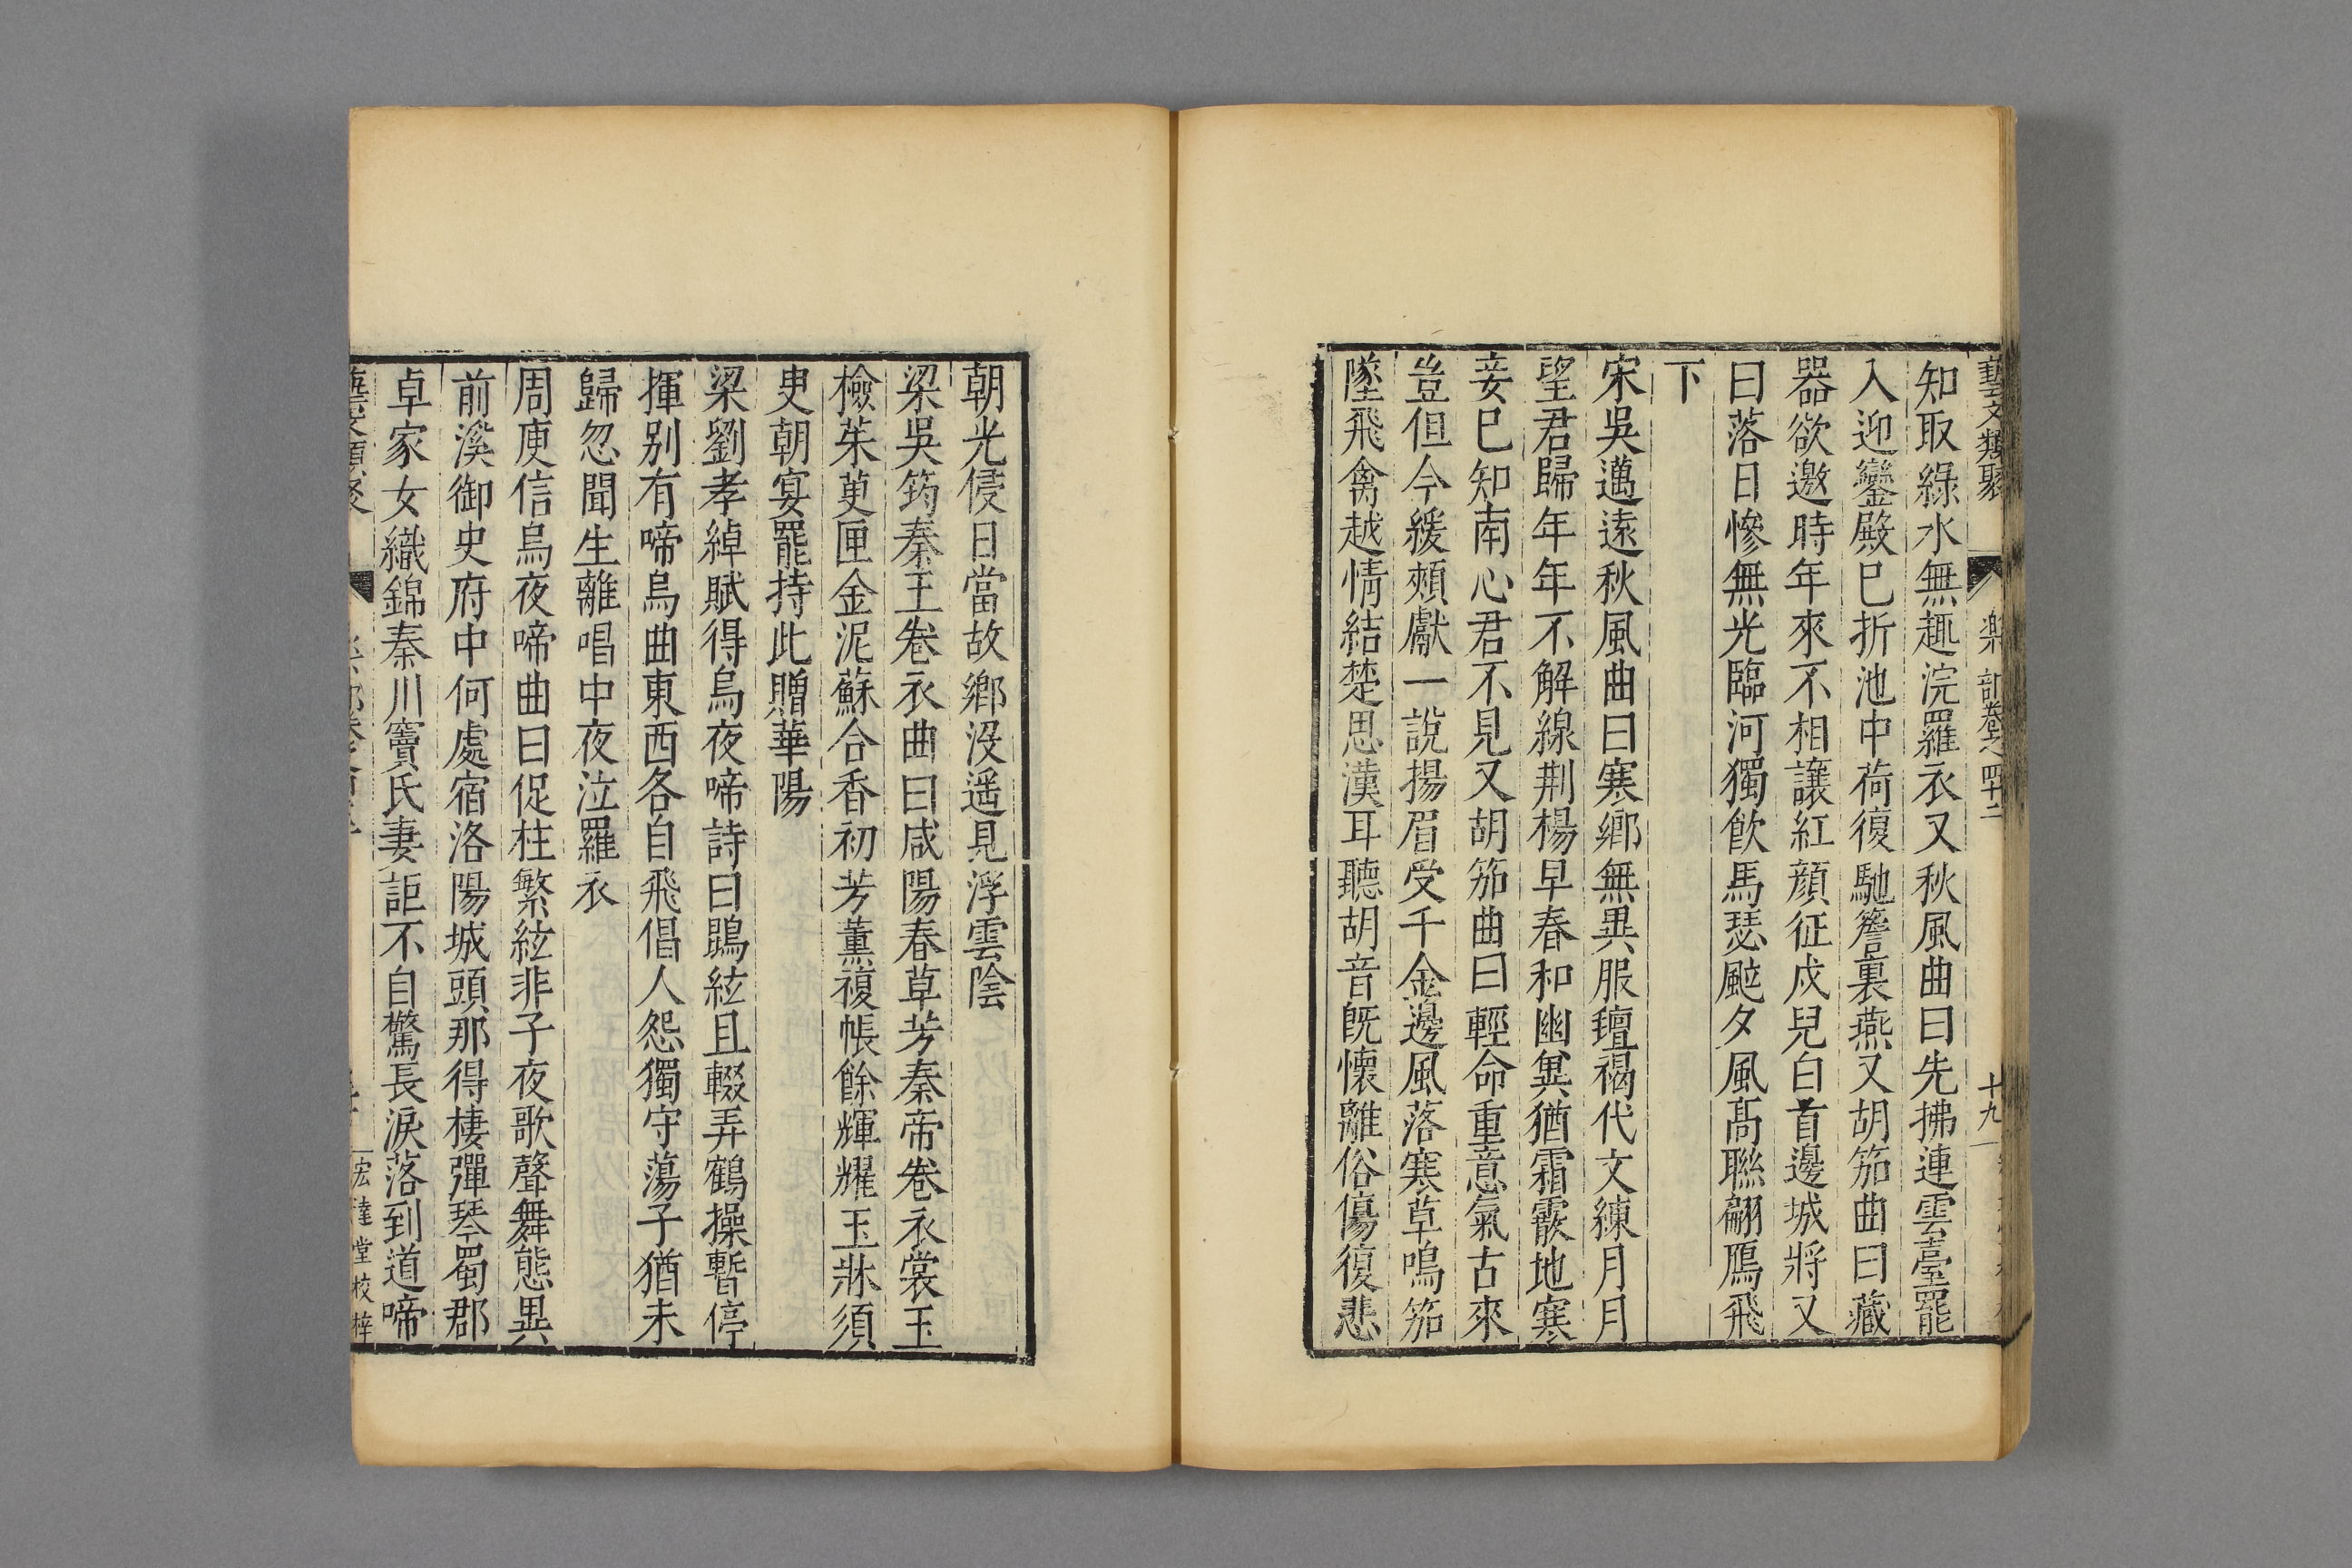 藝文類聚 樂部卷之四十二 十九
知取綠水無趣浣羅衣又秋風曲曰先拂連雲臺罷
入迎鑾殿巳折池中荷復馳簷裏燕又胡笳曲曰藏
器欲邀時年來不相讓紅顔征戍兒白首邊城將又
曰落日慘無光臨河獨飲馬瑟颭夕風髙聯翩鴈飛
下
宋吳邁遠秋風曲曰寒鄉無異服氊褐代文練月月
望君歸年年不解線荆楊早春和幽兾猶霜霰地寒
妾巳知南心君不見又胡笳曲曰輕命重意氣古來
豈但今緩頰獻一說揚眉受千金邊風落寒草鳴笳
墜飛禽越情結楚思漢耳聽胡音旣懷離俗傷復悲
朝光侵日當故鄉沒遥見浮雲陰
梁吳筠秦王卷衣曲曰咸陽春草芳秦帝卷衣裳玉
檢茱萸匣金泥蘇合香初芳薰複帳餘輝耀玉牀須
㬰朝宴罷持此贈華陽
梁劉孝綽賦得烏夜啼詩曰鵾絃且輟弄鶴操暫停
揮别有啼烏曲東西各自飛倡人怨獨守蕩子猶未
歸忽聞生離唱中夜泣羅衣
周庾信烏夜啼曲曰促柱繁絃非子夜歌聲舞態異
前溪御史府中何處宿洛陽城頭那得棲彈琴蜀郡
卓家女織錦秦川竇氏妻詎不自驚長淚落到道啼
宏達堂校梓